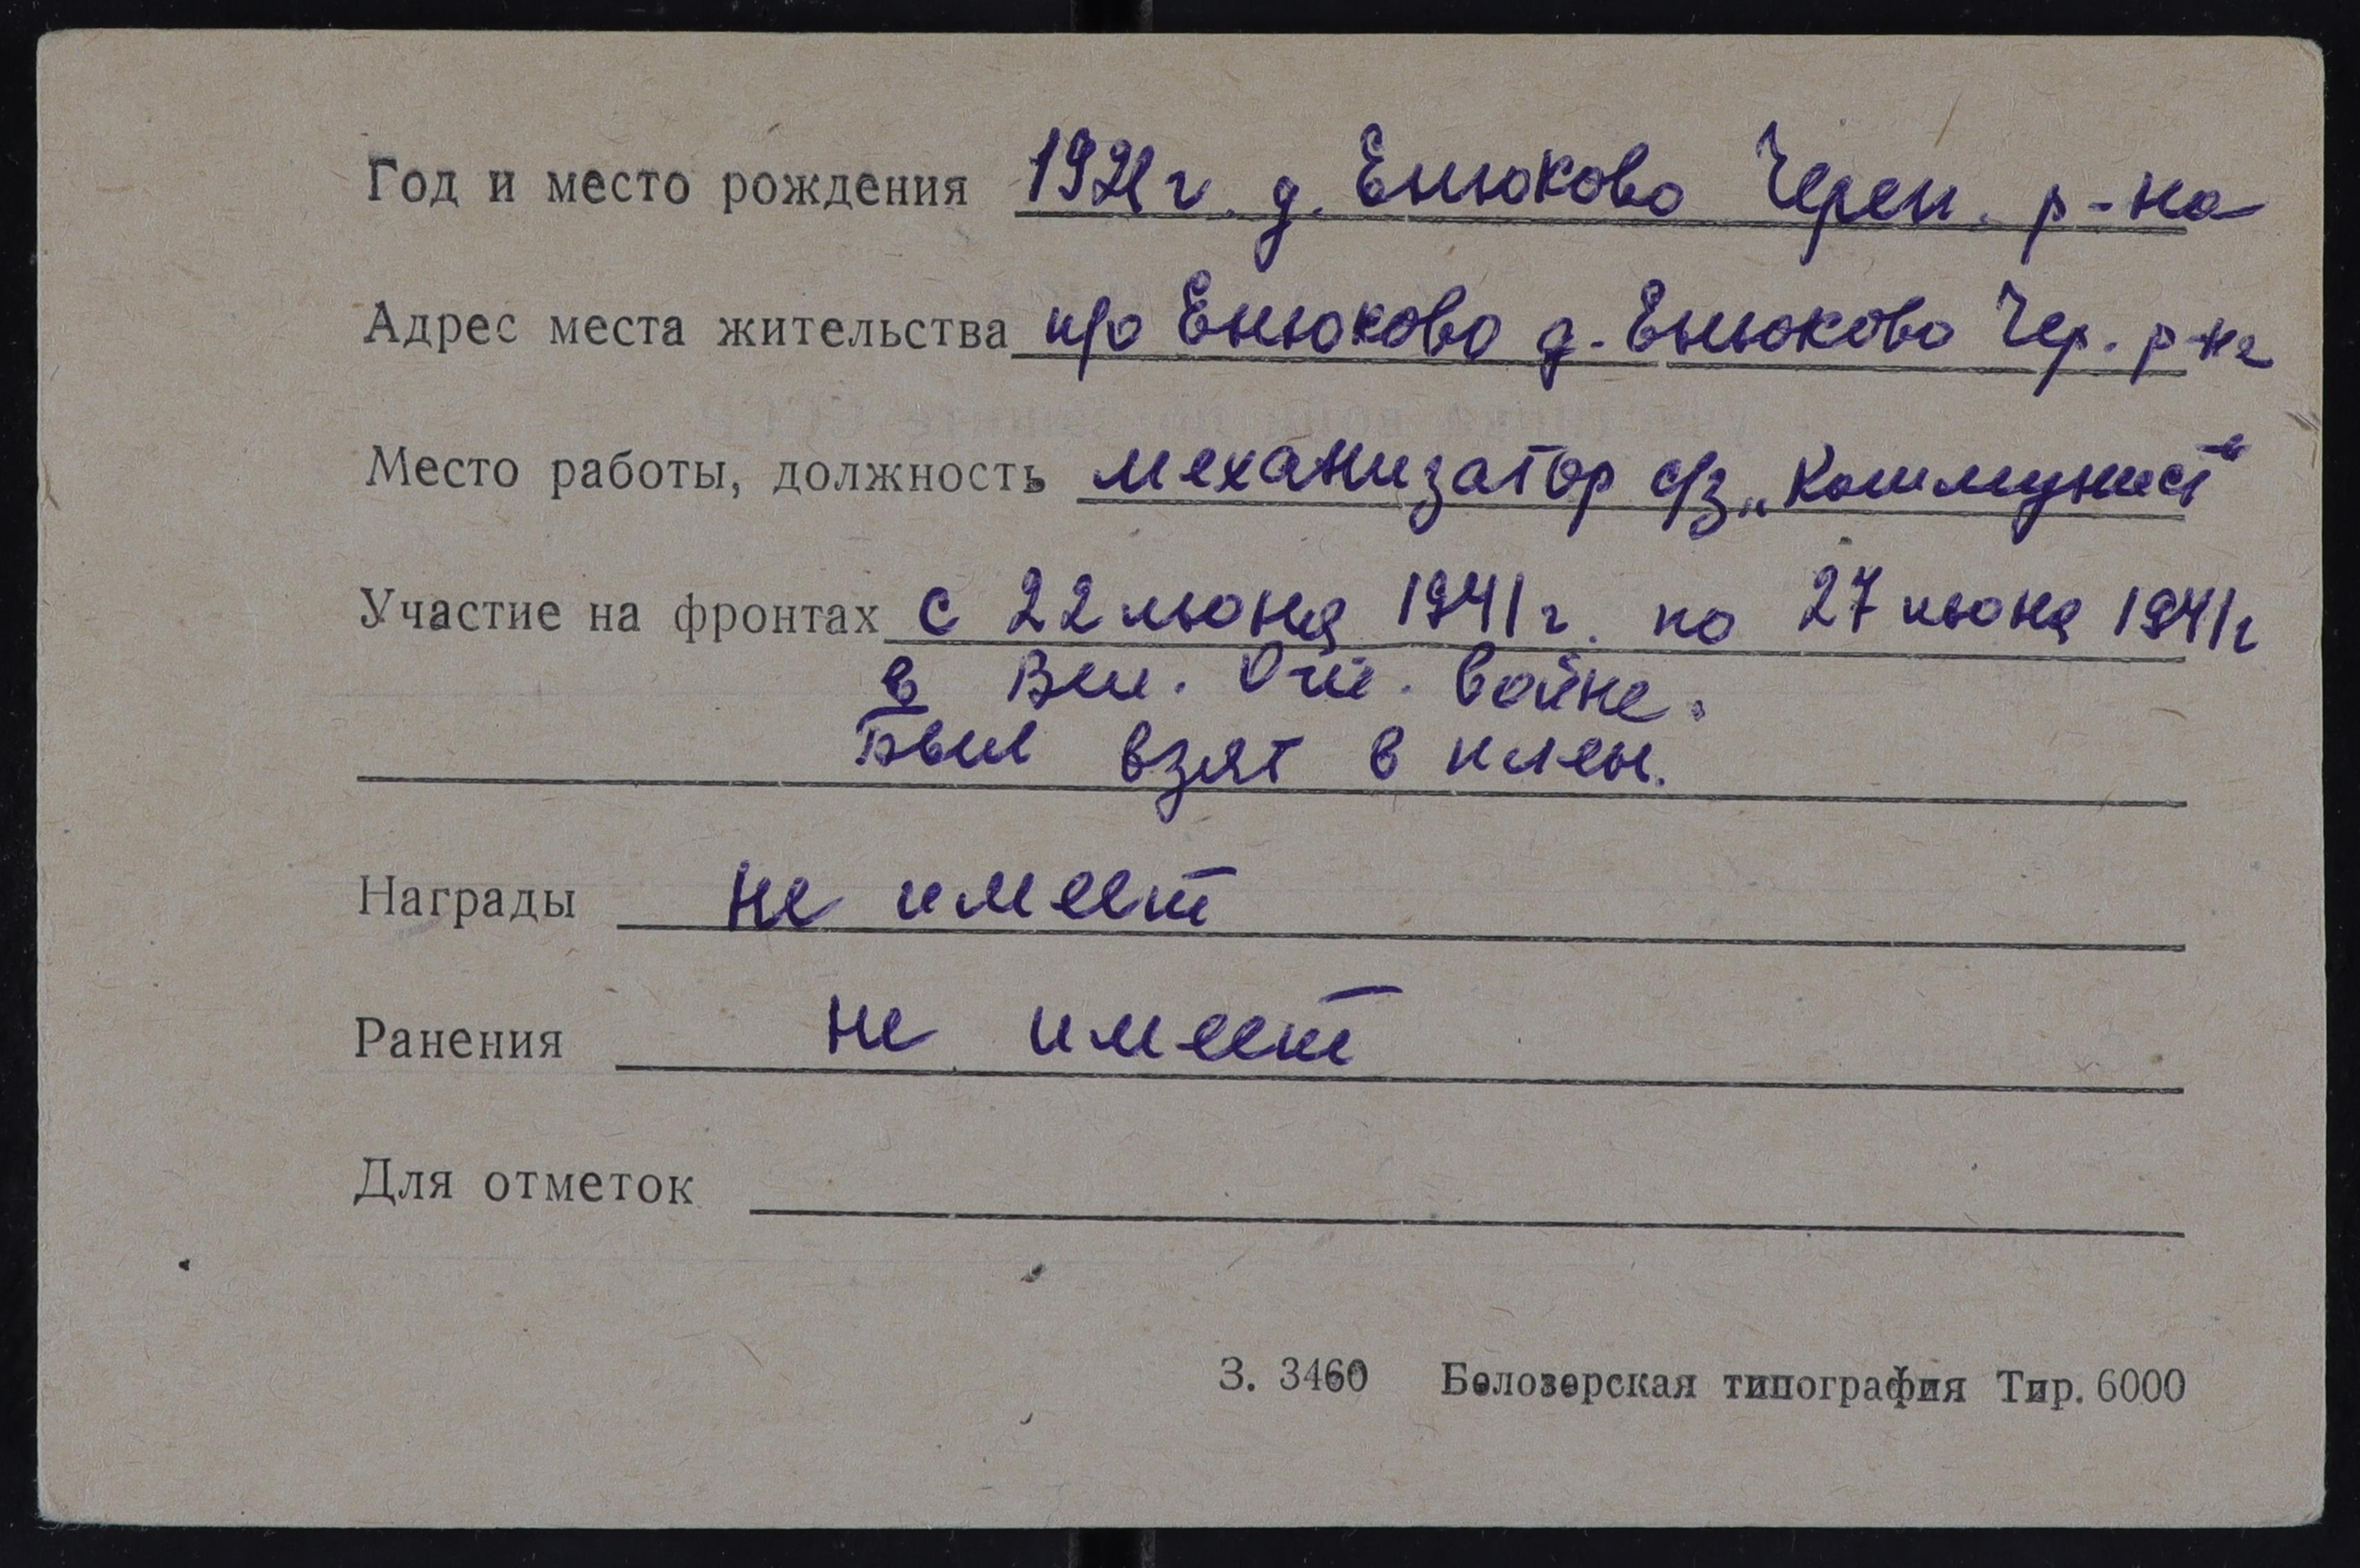 Год и место рождения 1921 г. д. Енюково Череп. р-на
Адрес места жительства п/о Енюково д. Енюково Чер. р-на
Место работы, должность механизатор с/з „Коммунист"
Участие на фронтах с 22 июня 1941 г. по 27 июня 1941 г
в Вел. Оте. войне.
Был взят в плен.
Награды не имеет
Ранения не имеет
Для отметок
З. 3460 Белозерская типография Тир. 6000